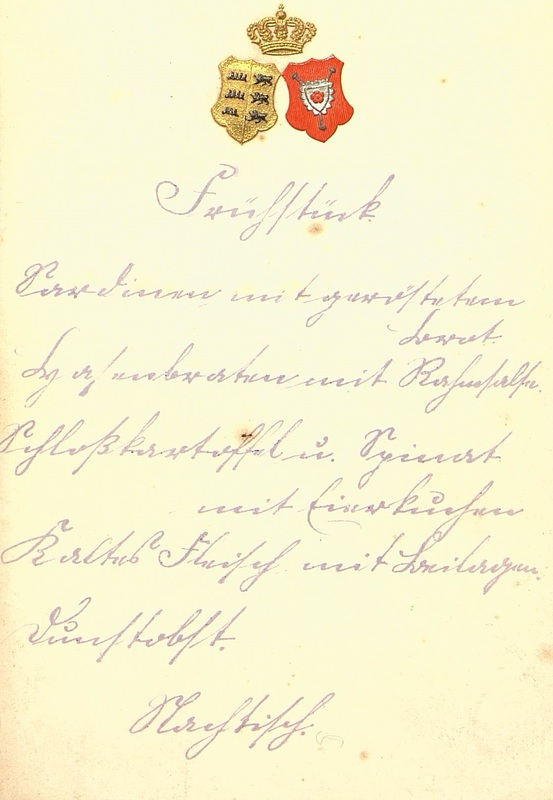 Frühstück.
Sardinen mit geröstetem
Brot.
Hasenbraten mit Rahmsalse.
Schloßkartoffel u. Spinat
mit Eierkuchen
Kaltes Fleisch mit Beilagen.
Dunstobst.
Nachtisch.